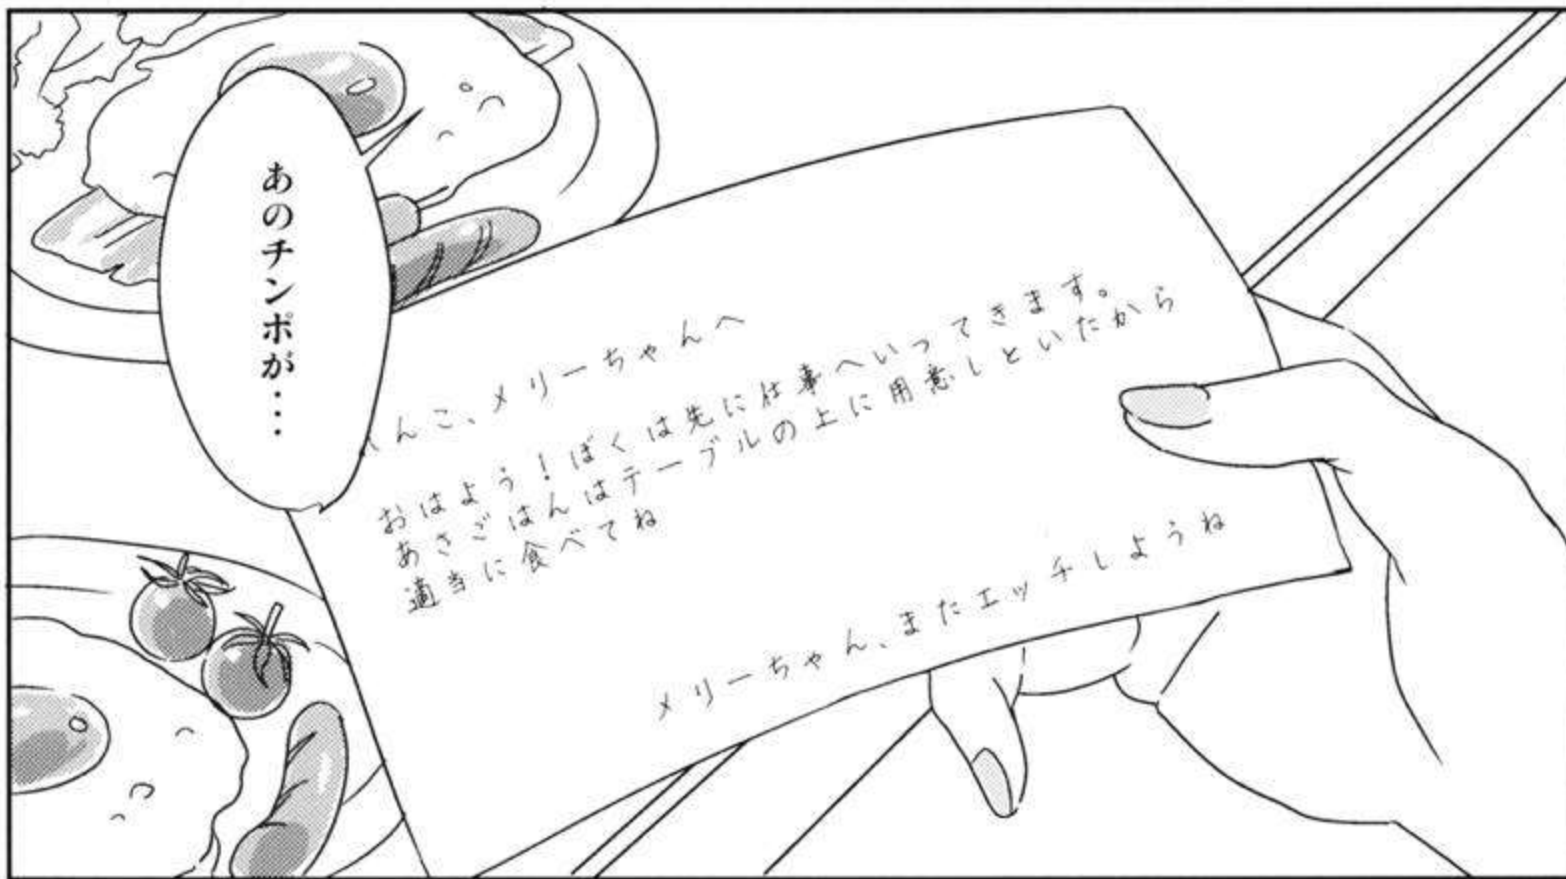 あのチンポが...
んこ、メリーちゃんへ
おはよう！ぼくは先に仕事へいってきます。
あさごはんはテーブルの上に用意しといたから
適当に食べてね
メリーちゃん、またエッチしようね